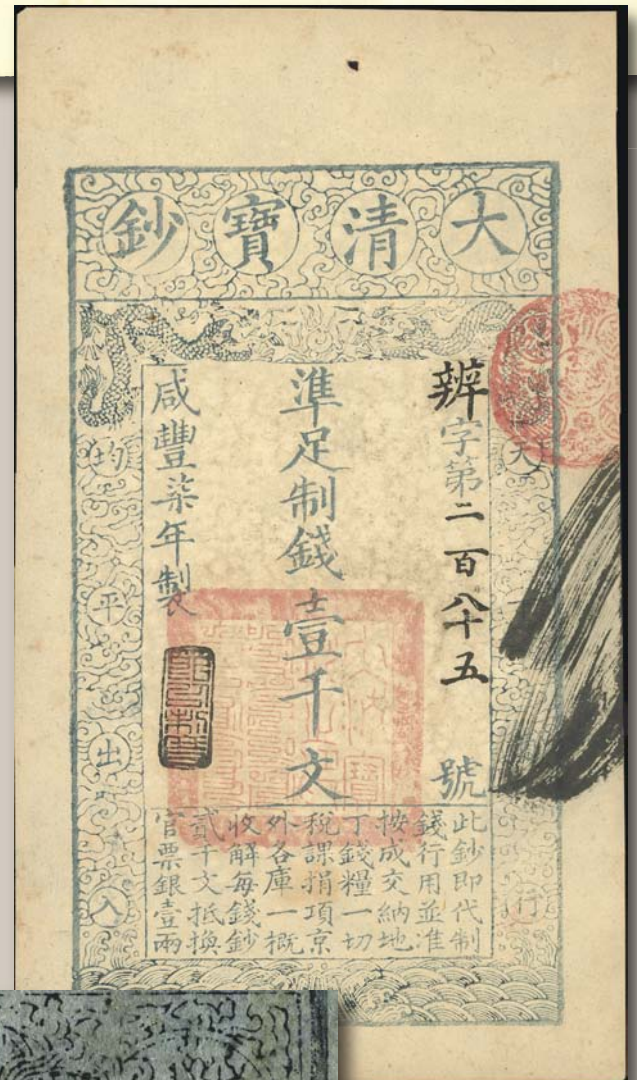 大清寶鈔
辨字第二百八十五號
準足制錢壹千文
咸豐柒年製
天
行
均平出入
此鈔即代制
錢行用並准
按成交納地
丁錢糧一切
稅課捐項京
外各庫一概
收解每錢鈔
貳千文抵換
官票銀壹兩